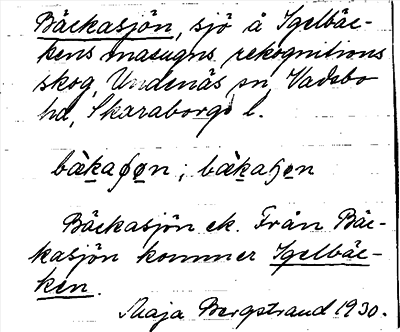 Bäckasjön, sjö å Igelbäc-
kens masugns rekognitions
skog, Undenäs sn, Vadsbo
hd, Skaraborgs l.
bæ̀kaʃøn ; bæ̀kaɧøn
Bäckasjön ek. Från Bäc-
kasjön kommer Igelbäc-
ken.
Maja Bergstrand 1930.